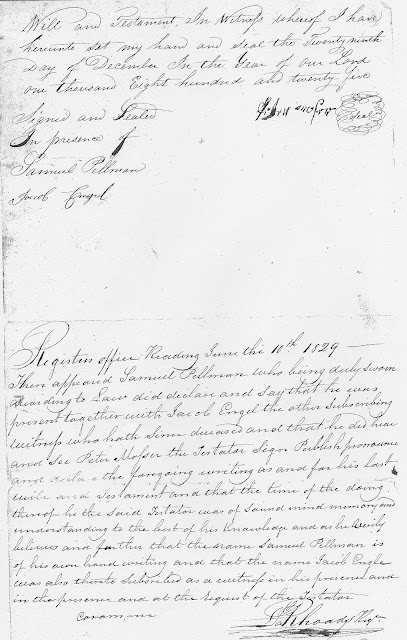 Will and Testament, In Witness whereof I have
hereunto set my han and seal the Twenty ninth
Day of December In the Year of our Lord
one thousand Eight hundred and twenty five
Signed and Sealed
In presence of
Seal
Samuel Pellman
Jacob Engel
Registers office Reading June the 10th 1829
Then appeared Samuel Pellman who being duly sworn
according to Law did declare and say that he was
present together with Jacob Engel the other Subscribing
witness who hath Since deceased and that he did hear
and See Peter Moser the Testator Sign Publish pronounce
and declare the foregoing writing as and for his last
will and Testament and that the time of the doing
thereof he the Said Testator was of Sound mind memory and
understanding to the best of his Knowledge and as he Verily
believes and further that the name Samuel Pellman is
of his own hand writing and that the name Jacob Engle
was also thereto Subscribed as a witness in his presence and
in the presence and at the request of the Testator
Coram me
Rhoads Regr.